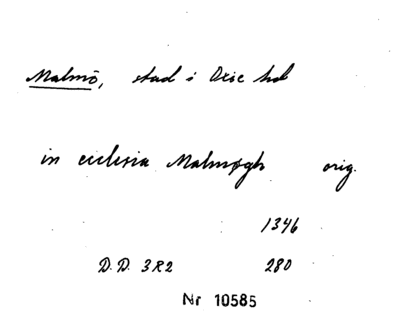 Malmö, stad i Oxie hd
in ecclesia Malmøgh orig.
1346
D.D. 3R2 280
Nr 10585